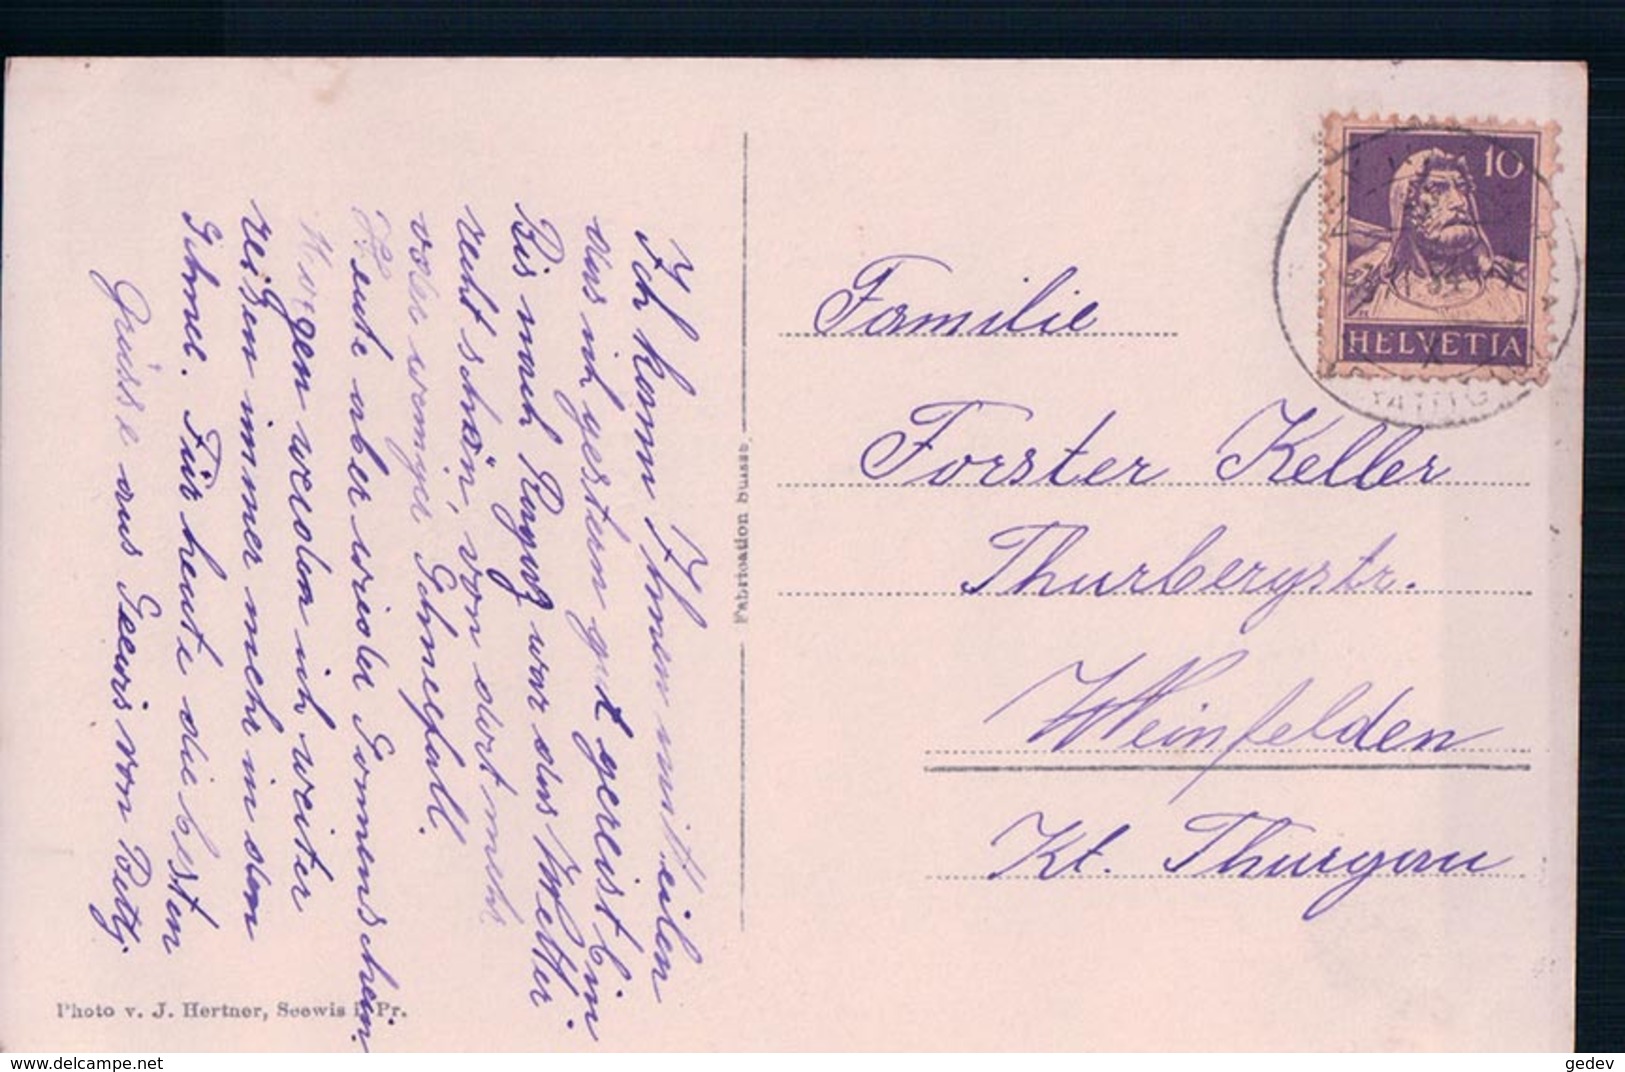 Ich kann Ihnen mitteilen
das ich gestern gut gereist bin
Bis nach Ragaz war das Wetter
recht schön, von dort mehr
oder weniger Schneefall.
Heute aber wieder Sonnenschein.
Morgen werden ich weiter
reisen immer mehr in den
Schnee. Für heute die besten
Grüsse aus Seewis von Betty.
Photo v. J. Hertner, Seewis i. Pr.
Fabrication Suisse.
10
HELVETIA
Familie
Forster Keller
Thurbergstr.
Weinfelden
Kt. Thurgau
delcampe.net
gedev